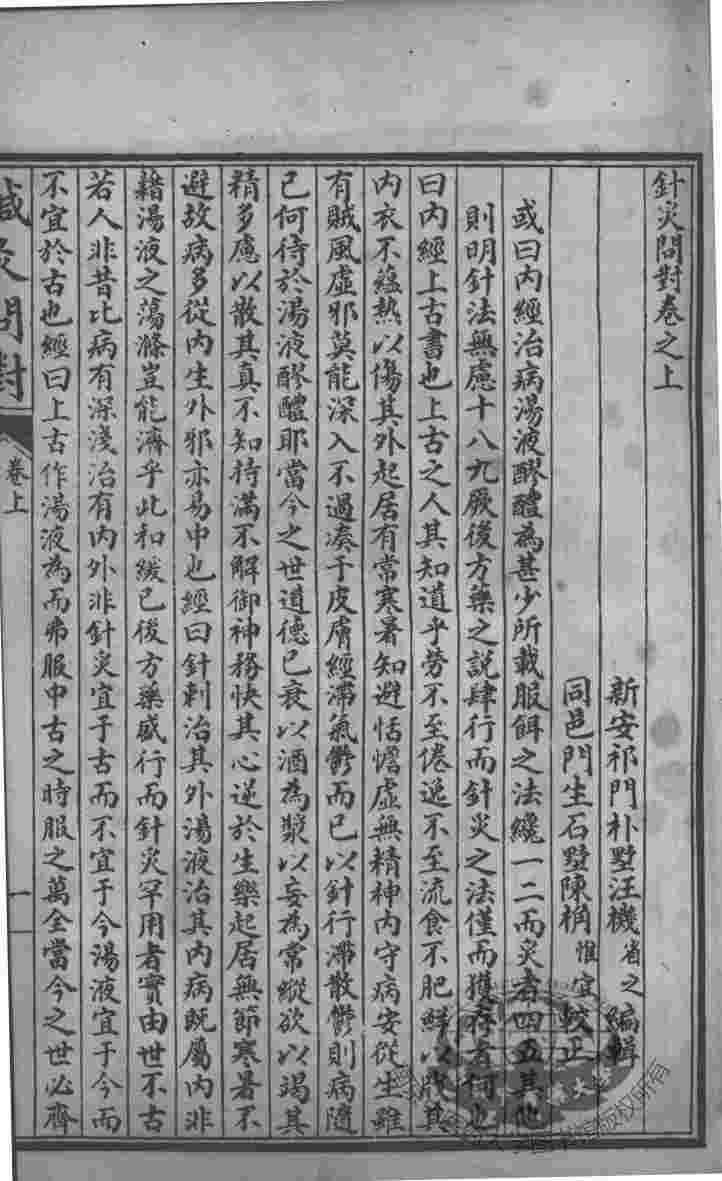 針灸問對卷之上
新安祁門朴墅汪機省之編輯
同邑門生石墅陳桷惟宜較正
或曰內經治病湯液醪醴為甚少所載服餌之法纔一二而灸者四五其他
則明針法無慮十八九厥後方藥之說肆行而針灸之法僅而獲存者何也
曰內經上古書也上古之人其知道乎勞不至倦逸不至流食不肥鮮以戕其
內衣不蘊熱以傷其外起居有常寒暑知避恬憺虛無精神內守病安從生雖
有賊風虛邪莫能深入不過凑于皮膚經滯氣鬱而已以針行滯散鬱則病隨
已何待於湯液醪醴耶當今之世道德已衰以酒為漿以妄為常縱欲以竭其
精多慮以散其真不知持滿不解御神務快其心逆於生樂起居無節寒暑不
避故病多從內生外邪亦易中也經曰針刺治其外湯液治其內病既屬內非
藉湯液之蕩滌豈能濟乎此和緩已後方藥盛行而針灸罕用者實由世不古
若人非昔比病有深淺治有內外非針灸宜于古而不宜于今湯液宜于今而
不宜於古也經曰上古作湯液為而弗服中古之時服之萬全當今之世必齊
鍼灸問對
卷上
一